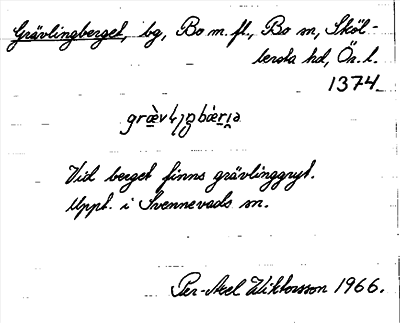 Grävlingberget, bg, Bo m. fl., Bo sn, Sköl-
lersta hd, Ön. l.
1374
Vid berget finns grävlinggryt.
Uppt. i Svennevads sn.
Per-Axel Wiktorsson 1966.